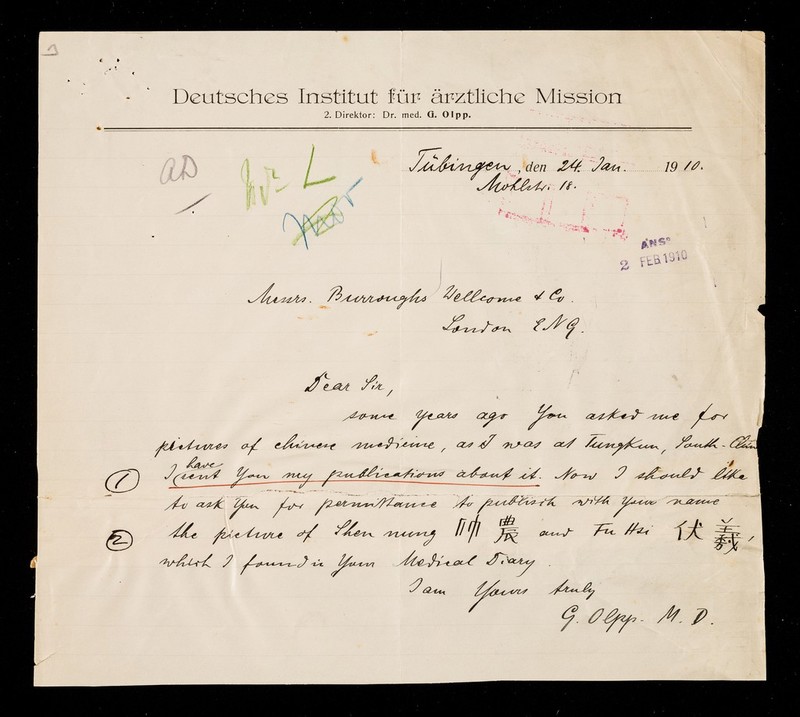 Deutsches Institut für ärztliche Mission
2. Direktor: Dr. med. G. Olpp.
Tübingen, den 24. Jan. 1910.
AD
L
ANSD
2 FEB 1910
Messrs. Burroughs Wellcome & Co.
London ENG.
Dear Sir,
some years ago You asked me for
pictures of chinese medicine, as I was at Tungkun, South-China
1 I have sent You my publications about it. Now I should like
to ask You for permittance to publisch with Your name
2 the picture of Shen nung 農 and Fu Hsi 伏羲,
which I found in Your Medical Diary.
I am Yours truly
G. Olpp. M. D.